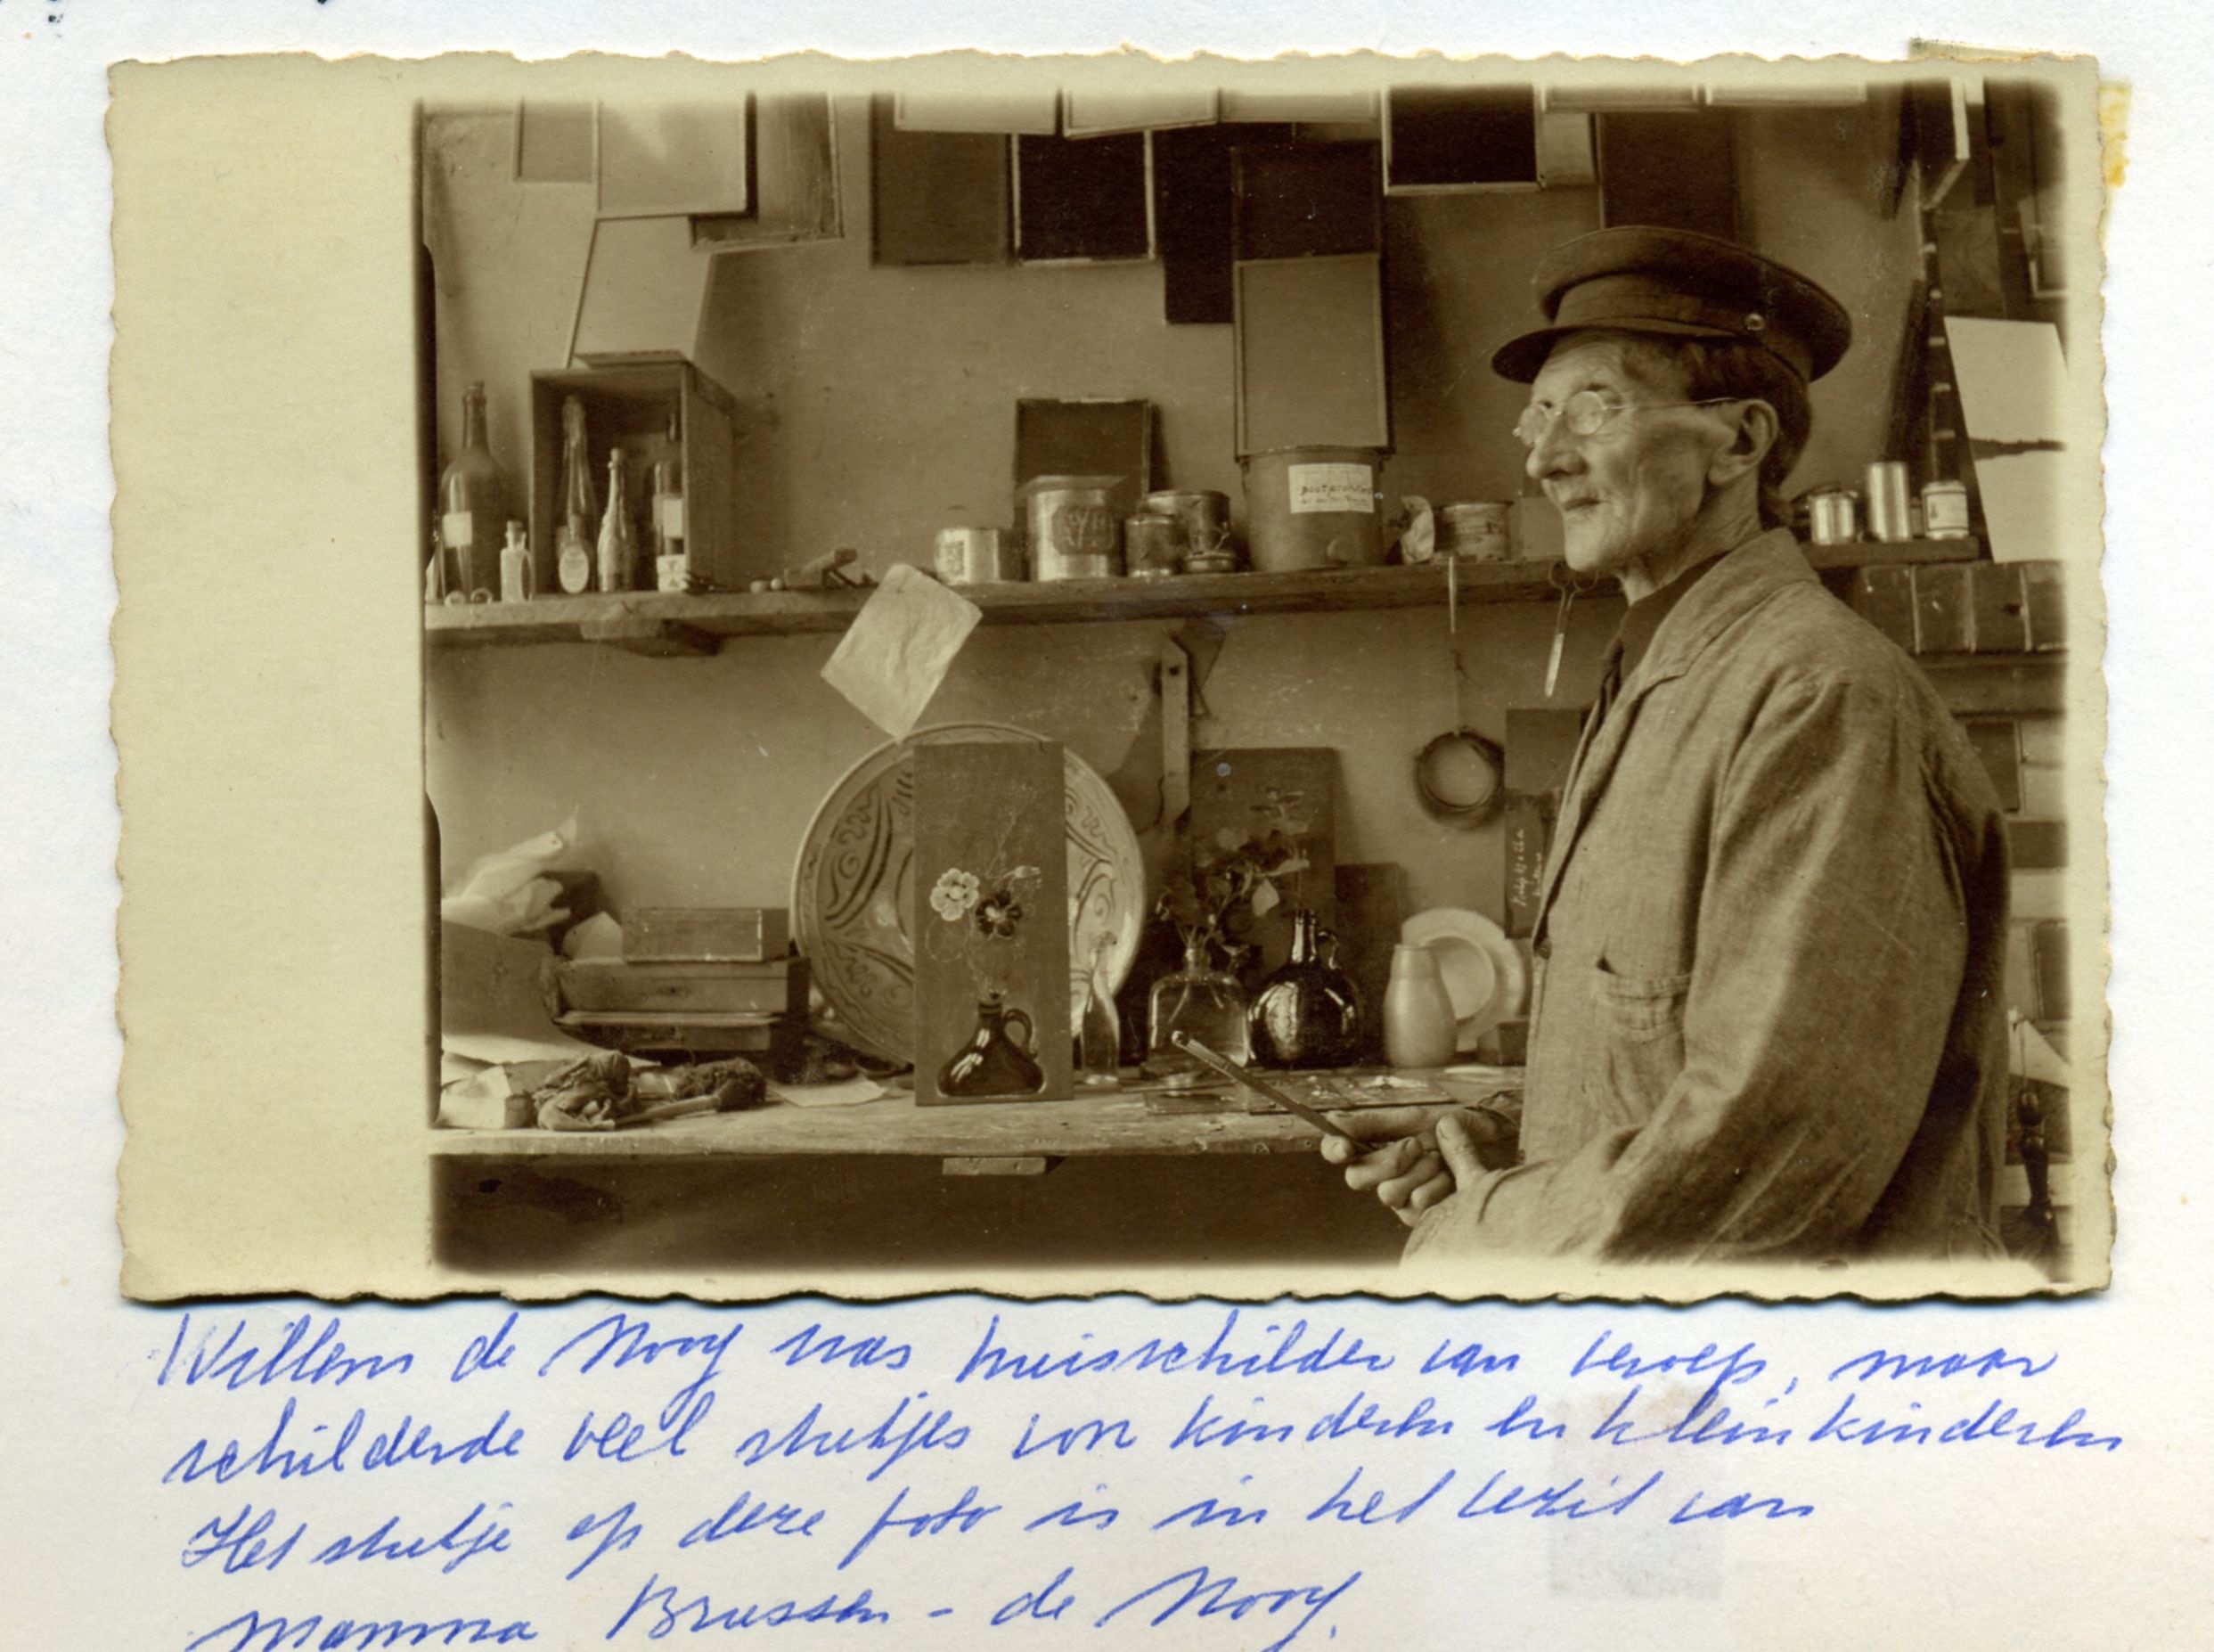 Willem de Nooy was huisschilder van beroep, maar
schilderde veel stukjes voor kinderen en kleinkinderen
Het stukje op deze foto is in het bezit van
mamma Brussen - de Nooy.